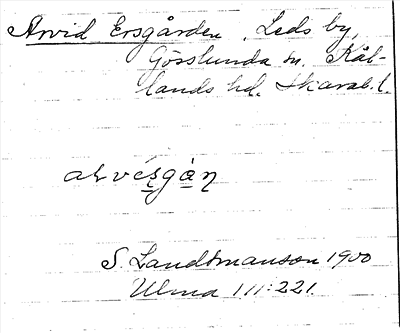 Arvid Ersgården, Leds by,
Gösslunda sn. Kål-
lands hd. Skarab. l.
arvésgàn
S. Landtmanson 1900
Ulma 111:221.